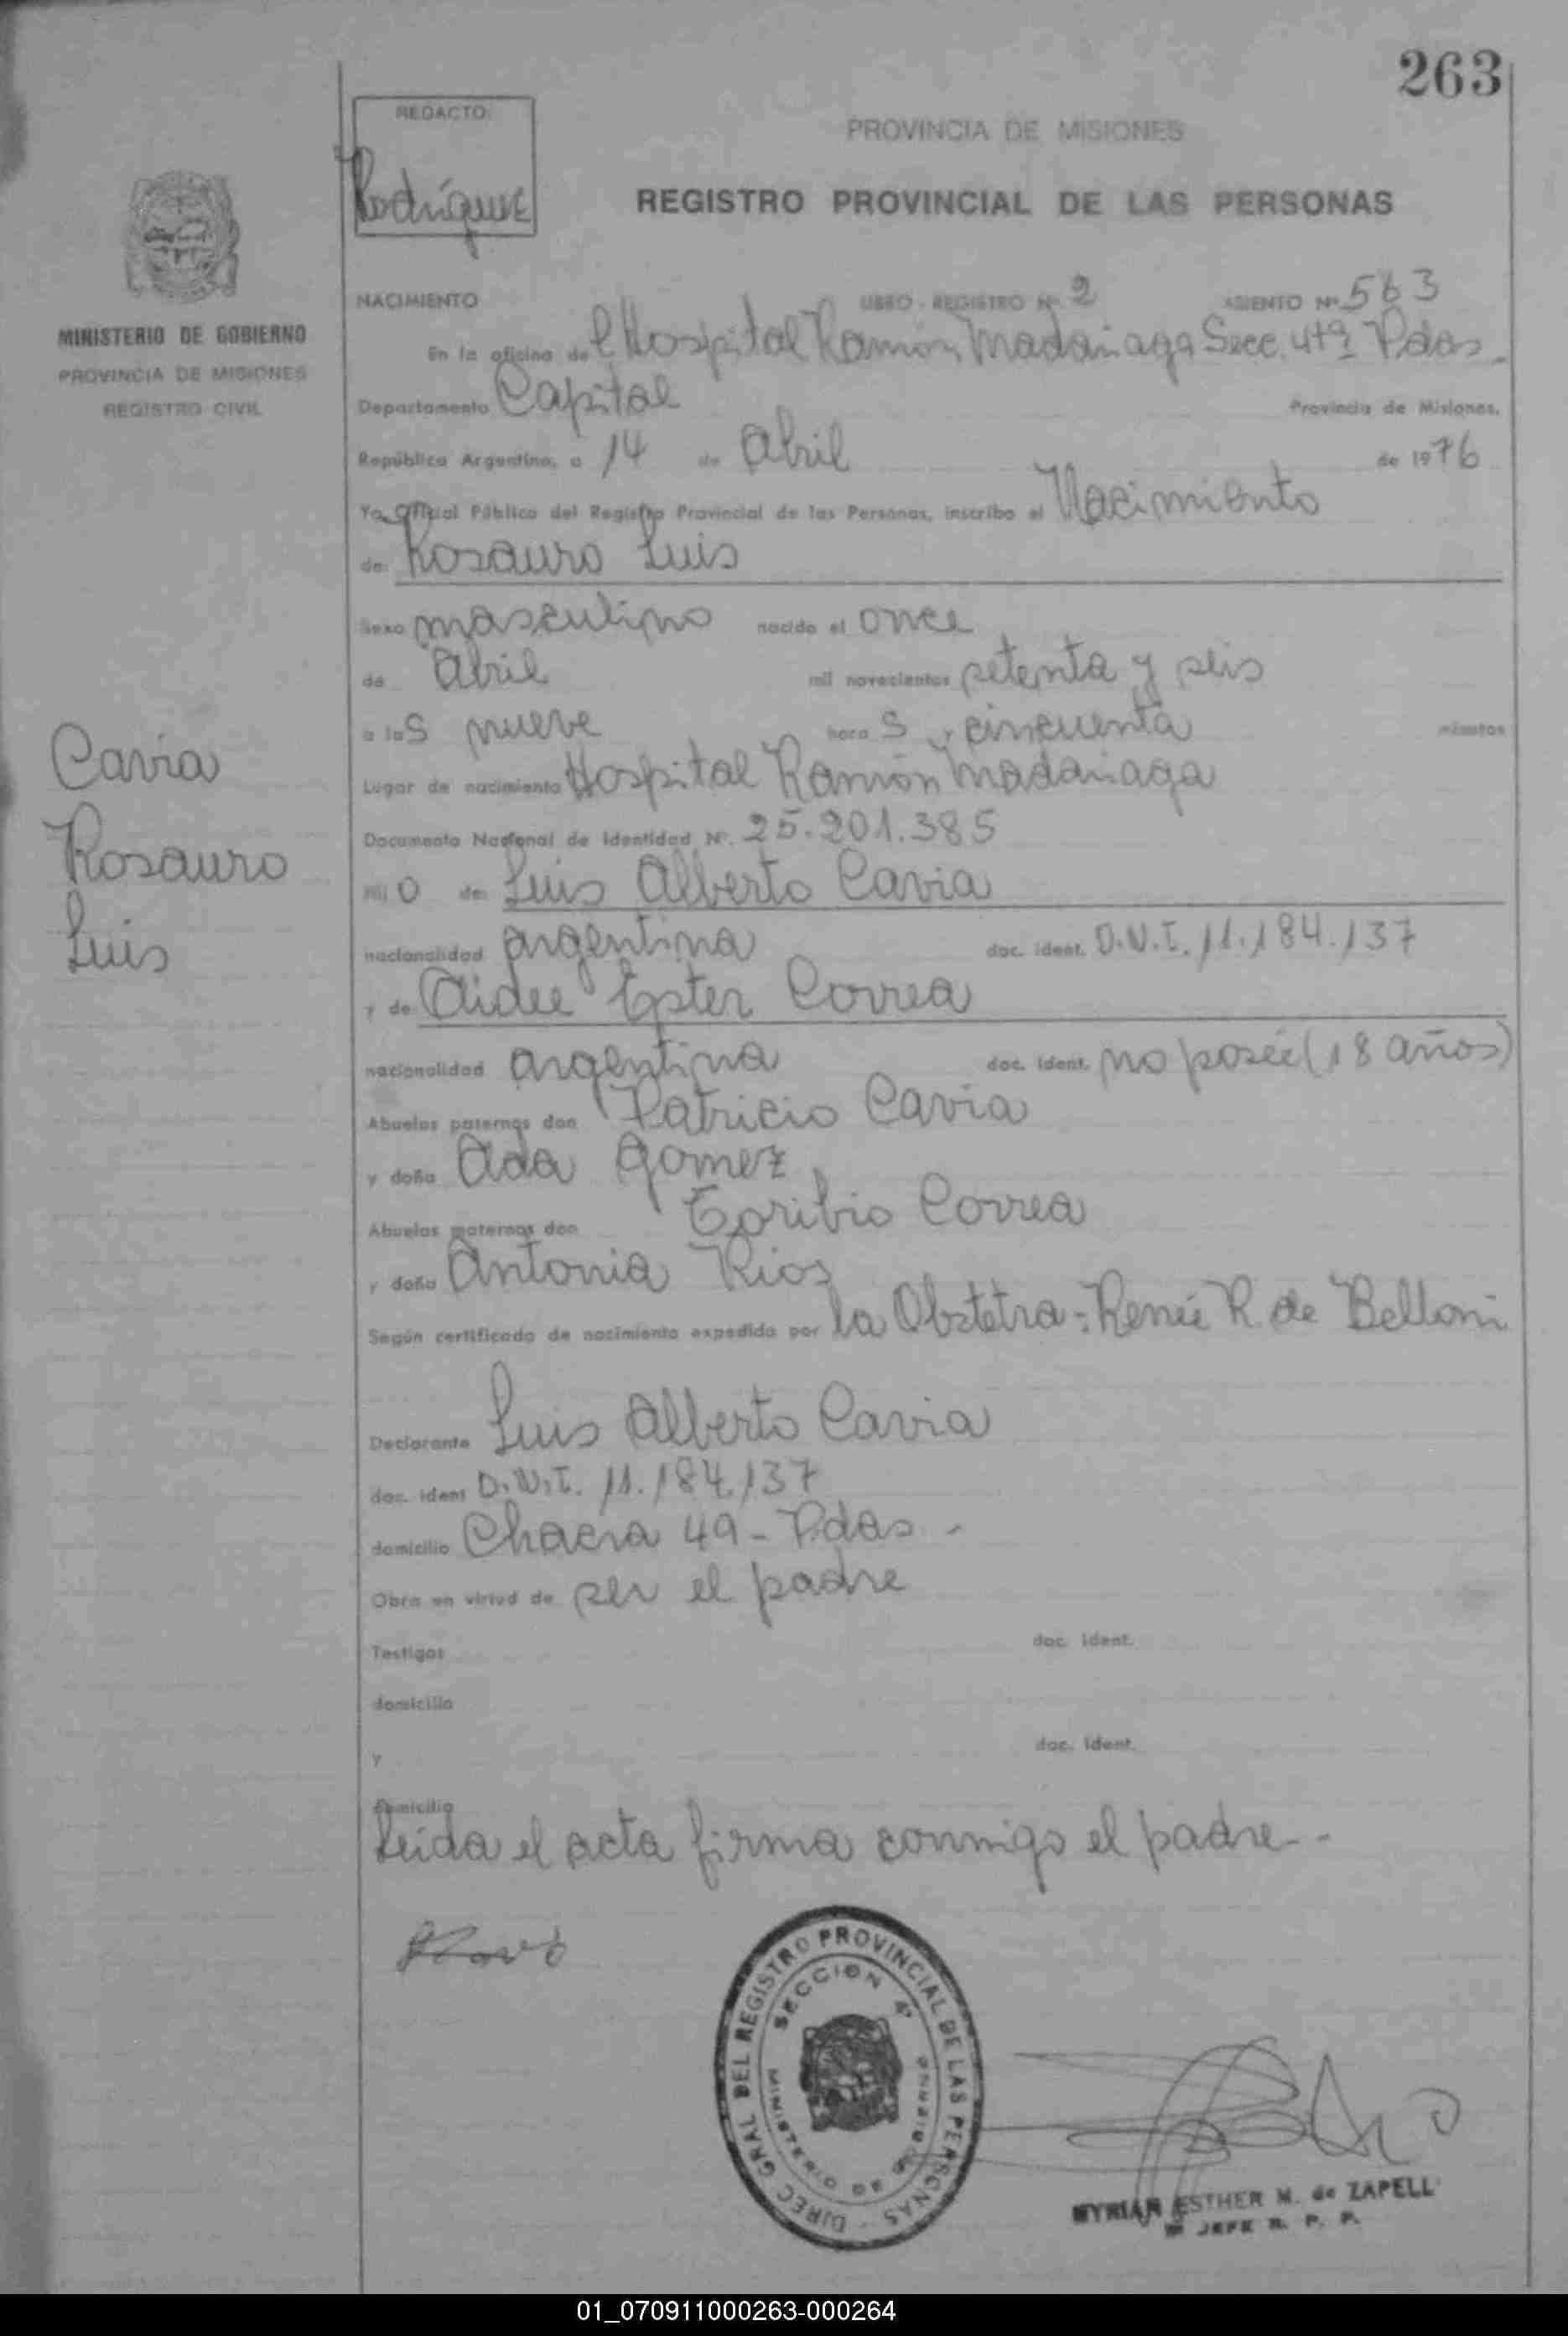 263
REDACTO:
Rodríguez
PROVINCIA DE MISIONES
REGISTRO PROVINCIAL DE LAS PERSONAS
MINISTERIO DE GOBIERNO
PROVINCIA DE MISIONES
REGISTRO CIVIL
NACIMIENTO LIBRO - REGISTRO Nº 2 ASIENTO Nº 563
En la oficina de l Hospital Ramón Madariaga Secc. 4ta Pdas.
Departamento Capital Provincia de Misiones,
República Argentina, a 14 de Abril de 1976
Yo, Oficial Público del Registro Provincial de las Personas, inscribo el Nacimiento
de: Rosauro Luis
Sexo masculino nacido el once
de Abril mil novecientos setenta y seis
a las nueve horas y cincuenta minutos
Lugar de nacimiento Hospital Ramón Madariaga
Documento Nacional de Identidad Nº. 25.201.385
Cavia
Rosauro
Luis
hijo de: Luis Alberto Cavia
nacionalidad argentina doc. ident. D.N.I. 11.184.137
y de Aidee Ester Correa
nacionalidad argentina doc. ident. no posée (18 años)
Abuelos paternos don Patricio Cavia
y doña Ada Gomez
Abuelos maternos don Toribio Correa
y doña Antonia Rios
Según certificado de nacimiento expedido por la Obstetra: Renée R. de Belloni
Declarante Luis Alberto Cavia
doc. ident D.N.I. 11.184.137
domicilio Chacra 49 - Pdas -
Obra en virtud de ser el padre
Testigos doc. ident.
domicilio
y doc. ident.
domicilio
Leida el acta firma conmigo el padre.-
DIREC. GRAL DEL REGISTRO PROVINCIAL DE LAS PERSONAS
SECCION 4ª
MINISTERIO DE GOBIERNO
MYRIAN ESTHER M. de ZAPELLI
JEFE R. P. P.
01_070911000263-000264